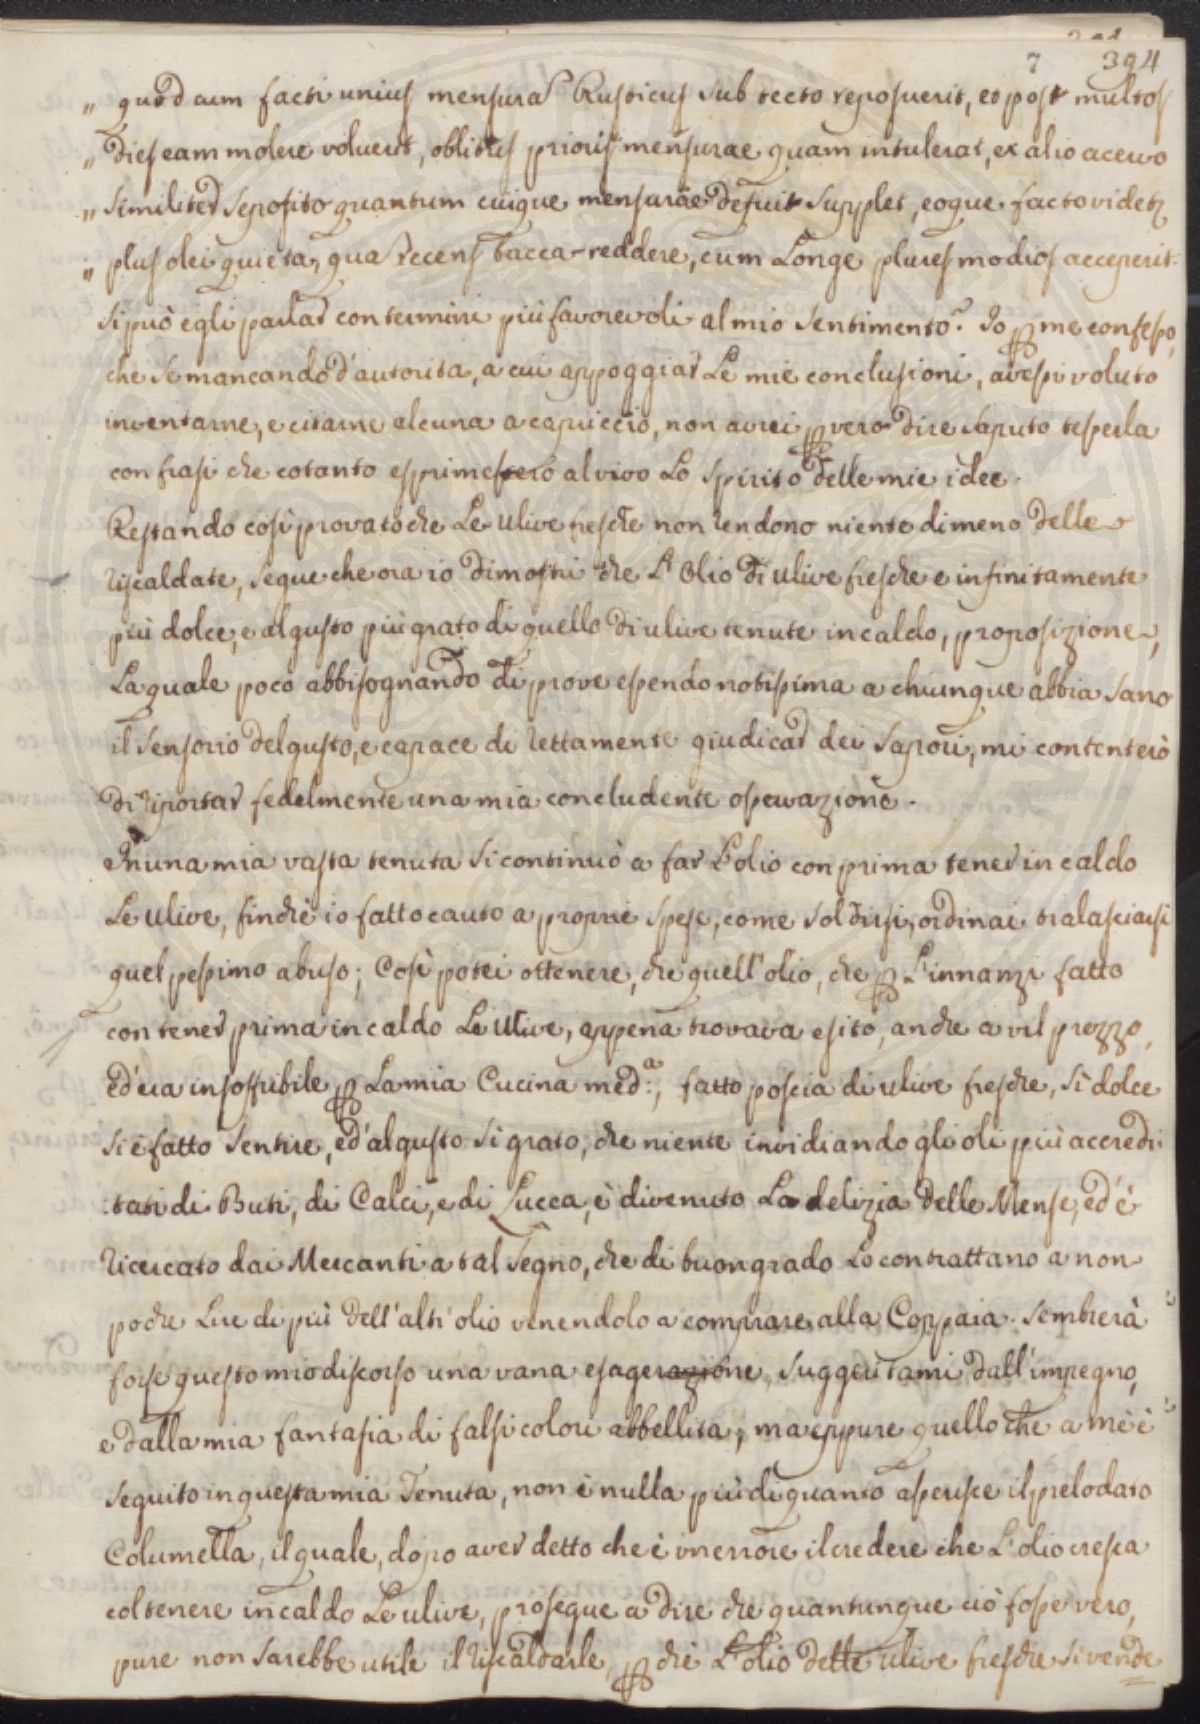 7 394
„ quod cum facti unius mensura Rusticus sub tecto reposuerit, et post multos
„ dies eam molere voluerit, oblitus prioris mensurae quam intulerat, ex alio acervo
„ similiter seposito quantum cuique mensurae defuit supplet, eoque facto videtz
„ plus olei quieta, qua recens bacca reddere, cum Longe plures modios acceperit=
Si può egli parlar con termini più favorevoli al mio Sentimento? Io ꝑ me confesso,
che se mancando d'autorita, a cui appoggiar Le mie conclusioni, avessi voluto
inventarne, e citarne alcuna a capriccio, non avrei ꝑ vero dire saputo tesserla
con frasi che cotanto esprimessero al vivo Lo Spirito delle mie idee.
Restando così provato che Le Ulive fresche non rendono niente dimeno delle
riscaldate, segue che ora io dimostri che L'Olio di Ulive fresche e infinitamente
più dolce, e al gusto più grato di quello di ulive tenute in caldo, proposizione,
La quale poco abbisognando di prove essendo notissima a chiunque abbia Sano
il Sensorio del gusto, e capace di rettamente giudicar dei Sapori, mi contenterò
di riportar fedelmente una mia concludente osservazione.
In una mia vasta tenuta si continuò a far L'olio con prima tener in caldo
Le Ulive, finchè io fatto cauto a proprie spese, come sol dirsi, ordinai tralasciarsi
quel pessimo abuso; Così potei ottenere, che quell'olio, che ꝑ L'innanzi fatto
con tener prima in caldo Le Ulive, appena trovava esito, anche a vil prezzo,
ed'era insoffribile ꝑ La mia Cucina med:ª, fatto poscia di ulive fresche, sì dolce
si è fatto sentire, ed'al gusto sì grato, che niente invidiando gli oli più accredi:
:tati di Buti, di Calci, e di Lucca, è divenuto La delizia delle Mense, ed'è
ricercato dai Mercanti a tal segno, che di buon grado Lo contrattano a non
poche Lire di più dell'altr'olio venendolo a comprare alla Coppaia. Sembrerà
forse questo mio discorso una vana esagerazione, suggeritami dall'impegno,
e dalla mia fantasia di falsi colori abbellita; ma eppure quello che a mè è
seguito in questa mia Tenuta, non è nulla più di quanto asserisce il prelodato
Columella, il quale, dopo aver detto che è un errore il credere che L'olio cresca
col tenere in caldo Le ulive, prosegue a dire che quantunque ciò fosse vero,
pure non sarebbe utile il riscaldarle, ꝑ chè L'olio delle ulive fresche si vende